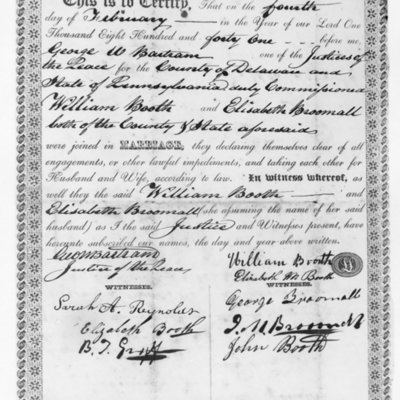 This is to Certify, That on the fourth
day of February in the Year of our Lord One
Thousand Eight Hundred and forty One before me,
George W Bartram one of the Justices of
the Peace for the County of Delaware and
State of Pennsylvania duly Commissioned
William Booth and Elisabeth Broomall
both of the County & State aforesaid
were joined in MARRIAGE, they declaring themselves clear of all
engagements, or other lawful impediments, and taking each other for
Husband and Wife, according to law. In witness whereof, as
well they the said William Booth and
Elisabeth Broomall (she assuming the name of her said
husband) as I the said Justice and Witnesses present, have
hereunto subscribed our names, the day and year above written.
Geo W Bartram
Justice of the Peace
William Booth
Elizabeth Booth
WITNESSES.
Sarah A. Reynolds
Elizabeth Booth
B. T.
WITNESSES.
George Broomall
Broomall
John Booth